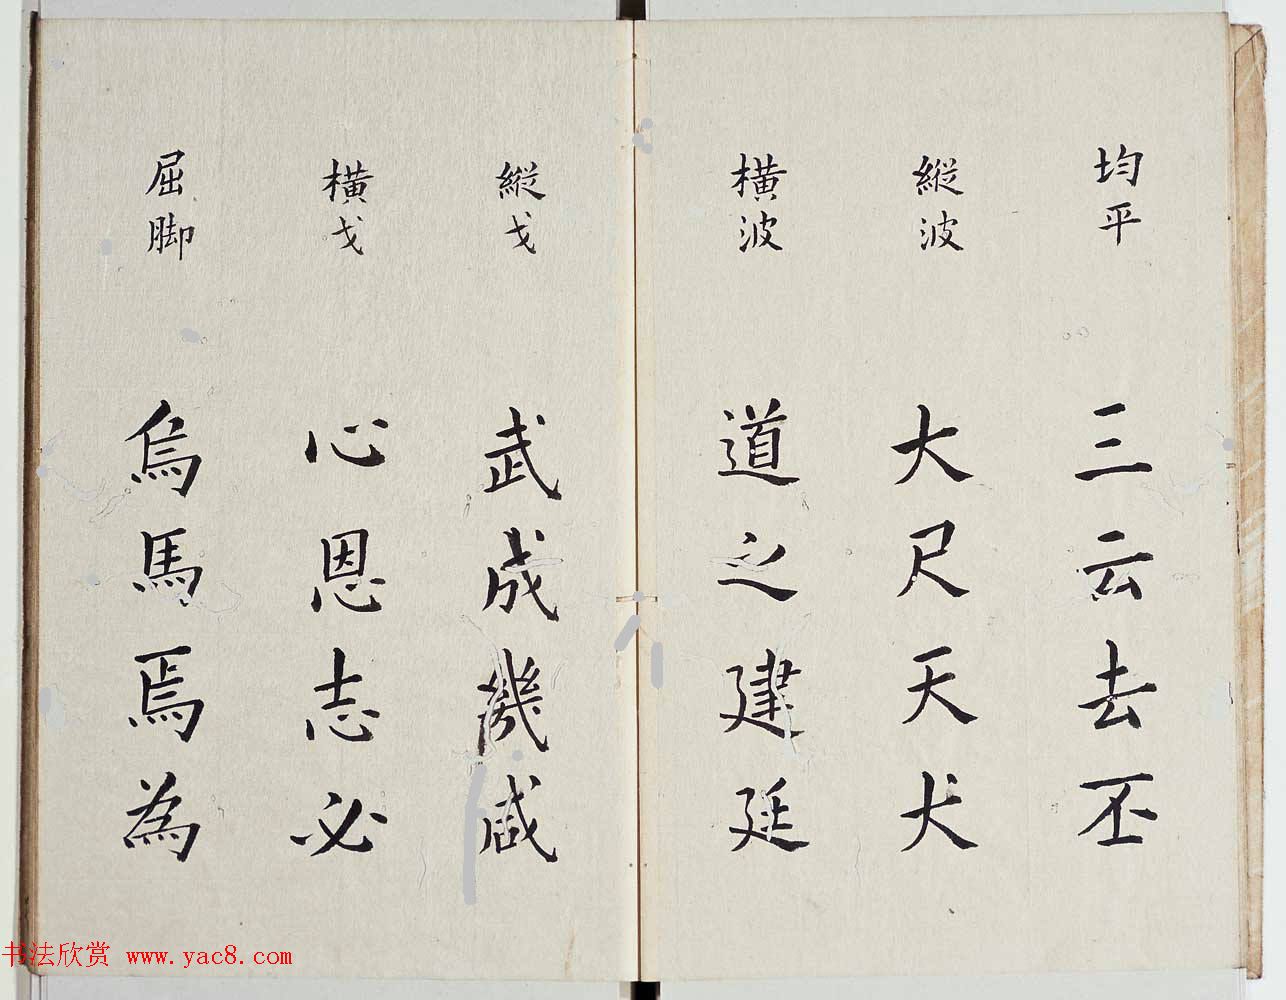 均平 三云去丕
縱波 大尺天犬
橫波 道之建廷
縱戈 武成幾咸
橫戈 心恩志必
屈脚 烏馬焉為
书法欣赏 www.yac8.com